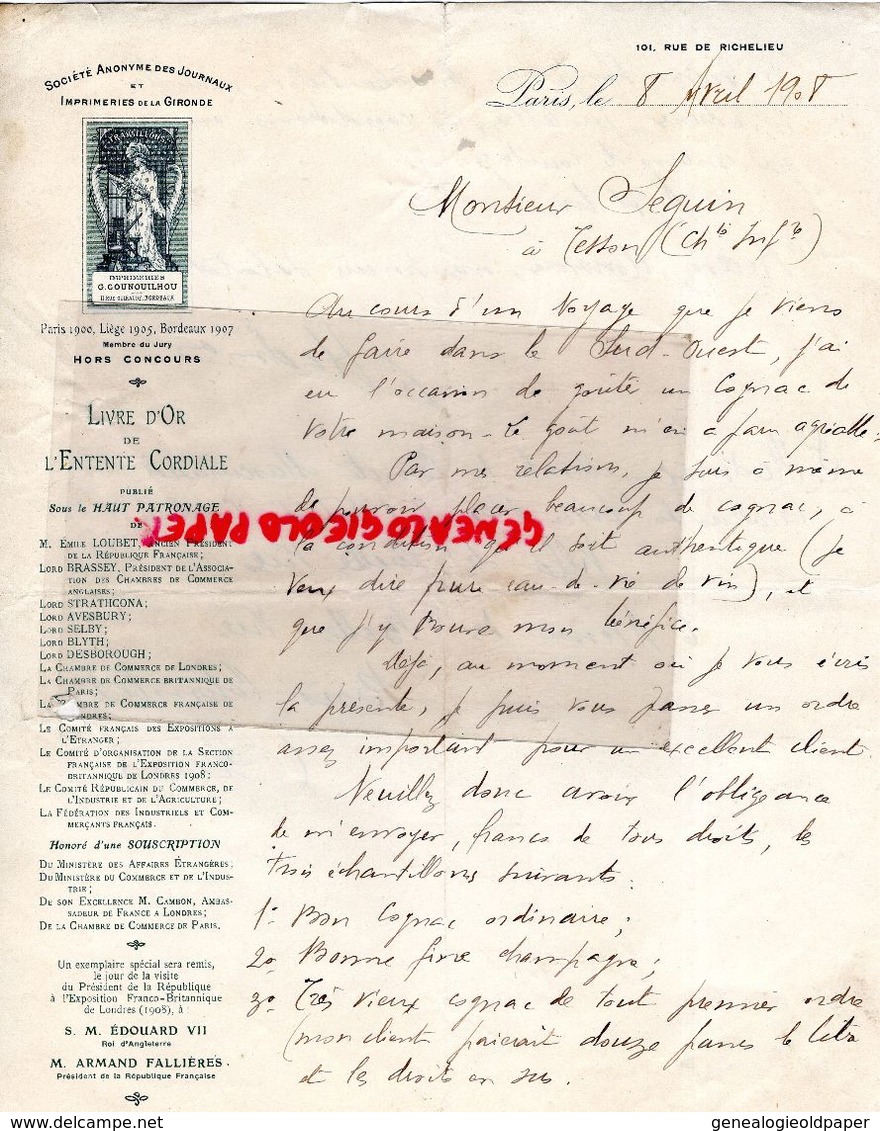 101, RUE DE RICHELIEU
SOCIÉTÉ ANONYME DES JOURNAUX
ET
IMPRIMERIES DE LA GIRONDE
IMPRIMERIES
G. GOUNOUILHOU
Paris 1900, Liège 1905, Bordeaux 1907
Membre du Jury
HORS CONCOURS
LIVRE D'OR
DE
L'ENTENTE CORDIALE
PUBLIÉ
Sous le HAUT PATRONAGE
DE
M. EMILE LOUBET, ANCIEN PRÉSIDENT
DE LA RÉPUBLIQUE FRANÇAISE;
LORD BRASSEY, PRÉSIDENT DE L'ASSOCIA-
TION DES CHAMBRES DE COMMERCE
ANGLAISES;
LORD STRATHCONA;
LORD AVESBURY;
LORD SELBY;
LORD BLYTH;
LORD DESBOROUGH;
LA CHAMBRE DE COMMERCE DE LONDRES;
LA CHAMBRE DE COMMERCE BRITANNIQUE DE
PARIS;
LA CHAMBRE DE COMMERCE FRANÇAISE DE
LONDRES;
LE COMITÉ FRANÇAIS DES EXPOSITIONS A
L'ETRANGER;
LE COMITÉ D'ORGANISATION DE LA SECTION
FRANÇAISE DE L'EXPOSITION FRANCO-
BRITANNIQUE DE LONDRES 1908;
LE COMITÉ RÉPUBLICAIN DU COMMERCE, DE
L'INDUSTRIE ET DE L'AGRICULTURE;
LA FÉDÉRATION DES INDUSTRIELS ET COM-
MERÇANTS FRANÇAIS.
Honoré d'une SOUSCRIPTION
DU MINISTÈRE DES AFFAIRES ÉTRANGÈRES;
DU MINISTÈRE DU COMMERCE ET DE L'INDUS-
TRIE;
DE SON EXCELLENCE M. CAMBON, AMBAS-
SADEUR DE FRANCE A LONDRES;
DE LA CHAMBRE DE COMMERCE DE PARIS.
Un exemplaire spécial sera remis,
le jour de la visite
du Président de la République
à l'Exposition Franco-Britannique
de Londres (1908), à :
S. M. ÉDOUARD VII
Roi d'Angleterre
M. ARMAND FALLIÈRES.
Président de la République Française
Paris, le 8 Avril 1908
Monsieur Seguin
à Tesson (Chte Infre)
Au cours d'un Voyage que je viens
de faire dans le Sud-Ouest, j'ai
eu l'occasion de goûté un Cognac de
votre maison - Le goût m'en a paru agréable.
Par mes relations, je suis à même
de pouvoir placer beaucoup de cognac, à
la condition qu'il soit authentique (je
veux dire pure eau-de-vie de vin), et
que j'y trouve mon bénéfice.
Déjà, au moment où je vous écris
la présente, je puis vous passer un ordre
assez important pour un excellent client.
Veuillez donc avoir l'obligeance
de m'envoyer, francs de tous droits, les
trois échantillons suivants :
1o Bon Cognac ordinaire;
2o Bonne fine champagne;
3o Très vieux cognac de tout premier ordre
(mon client paierait douze francs le litre
et les droits en sus.
GENEALOGIEOLD PAPER
genealogieoldpaper